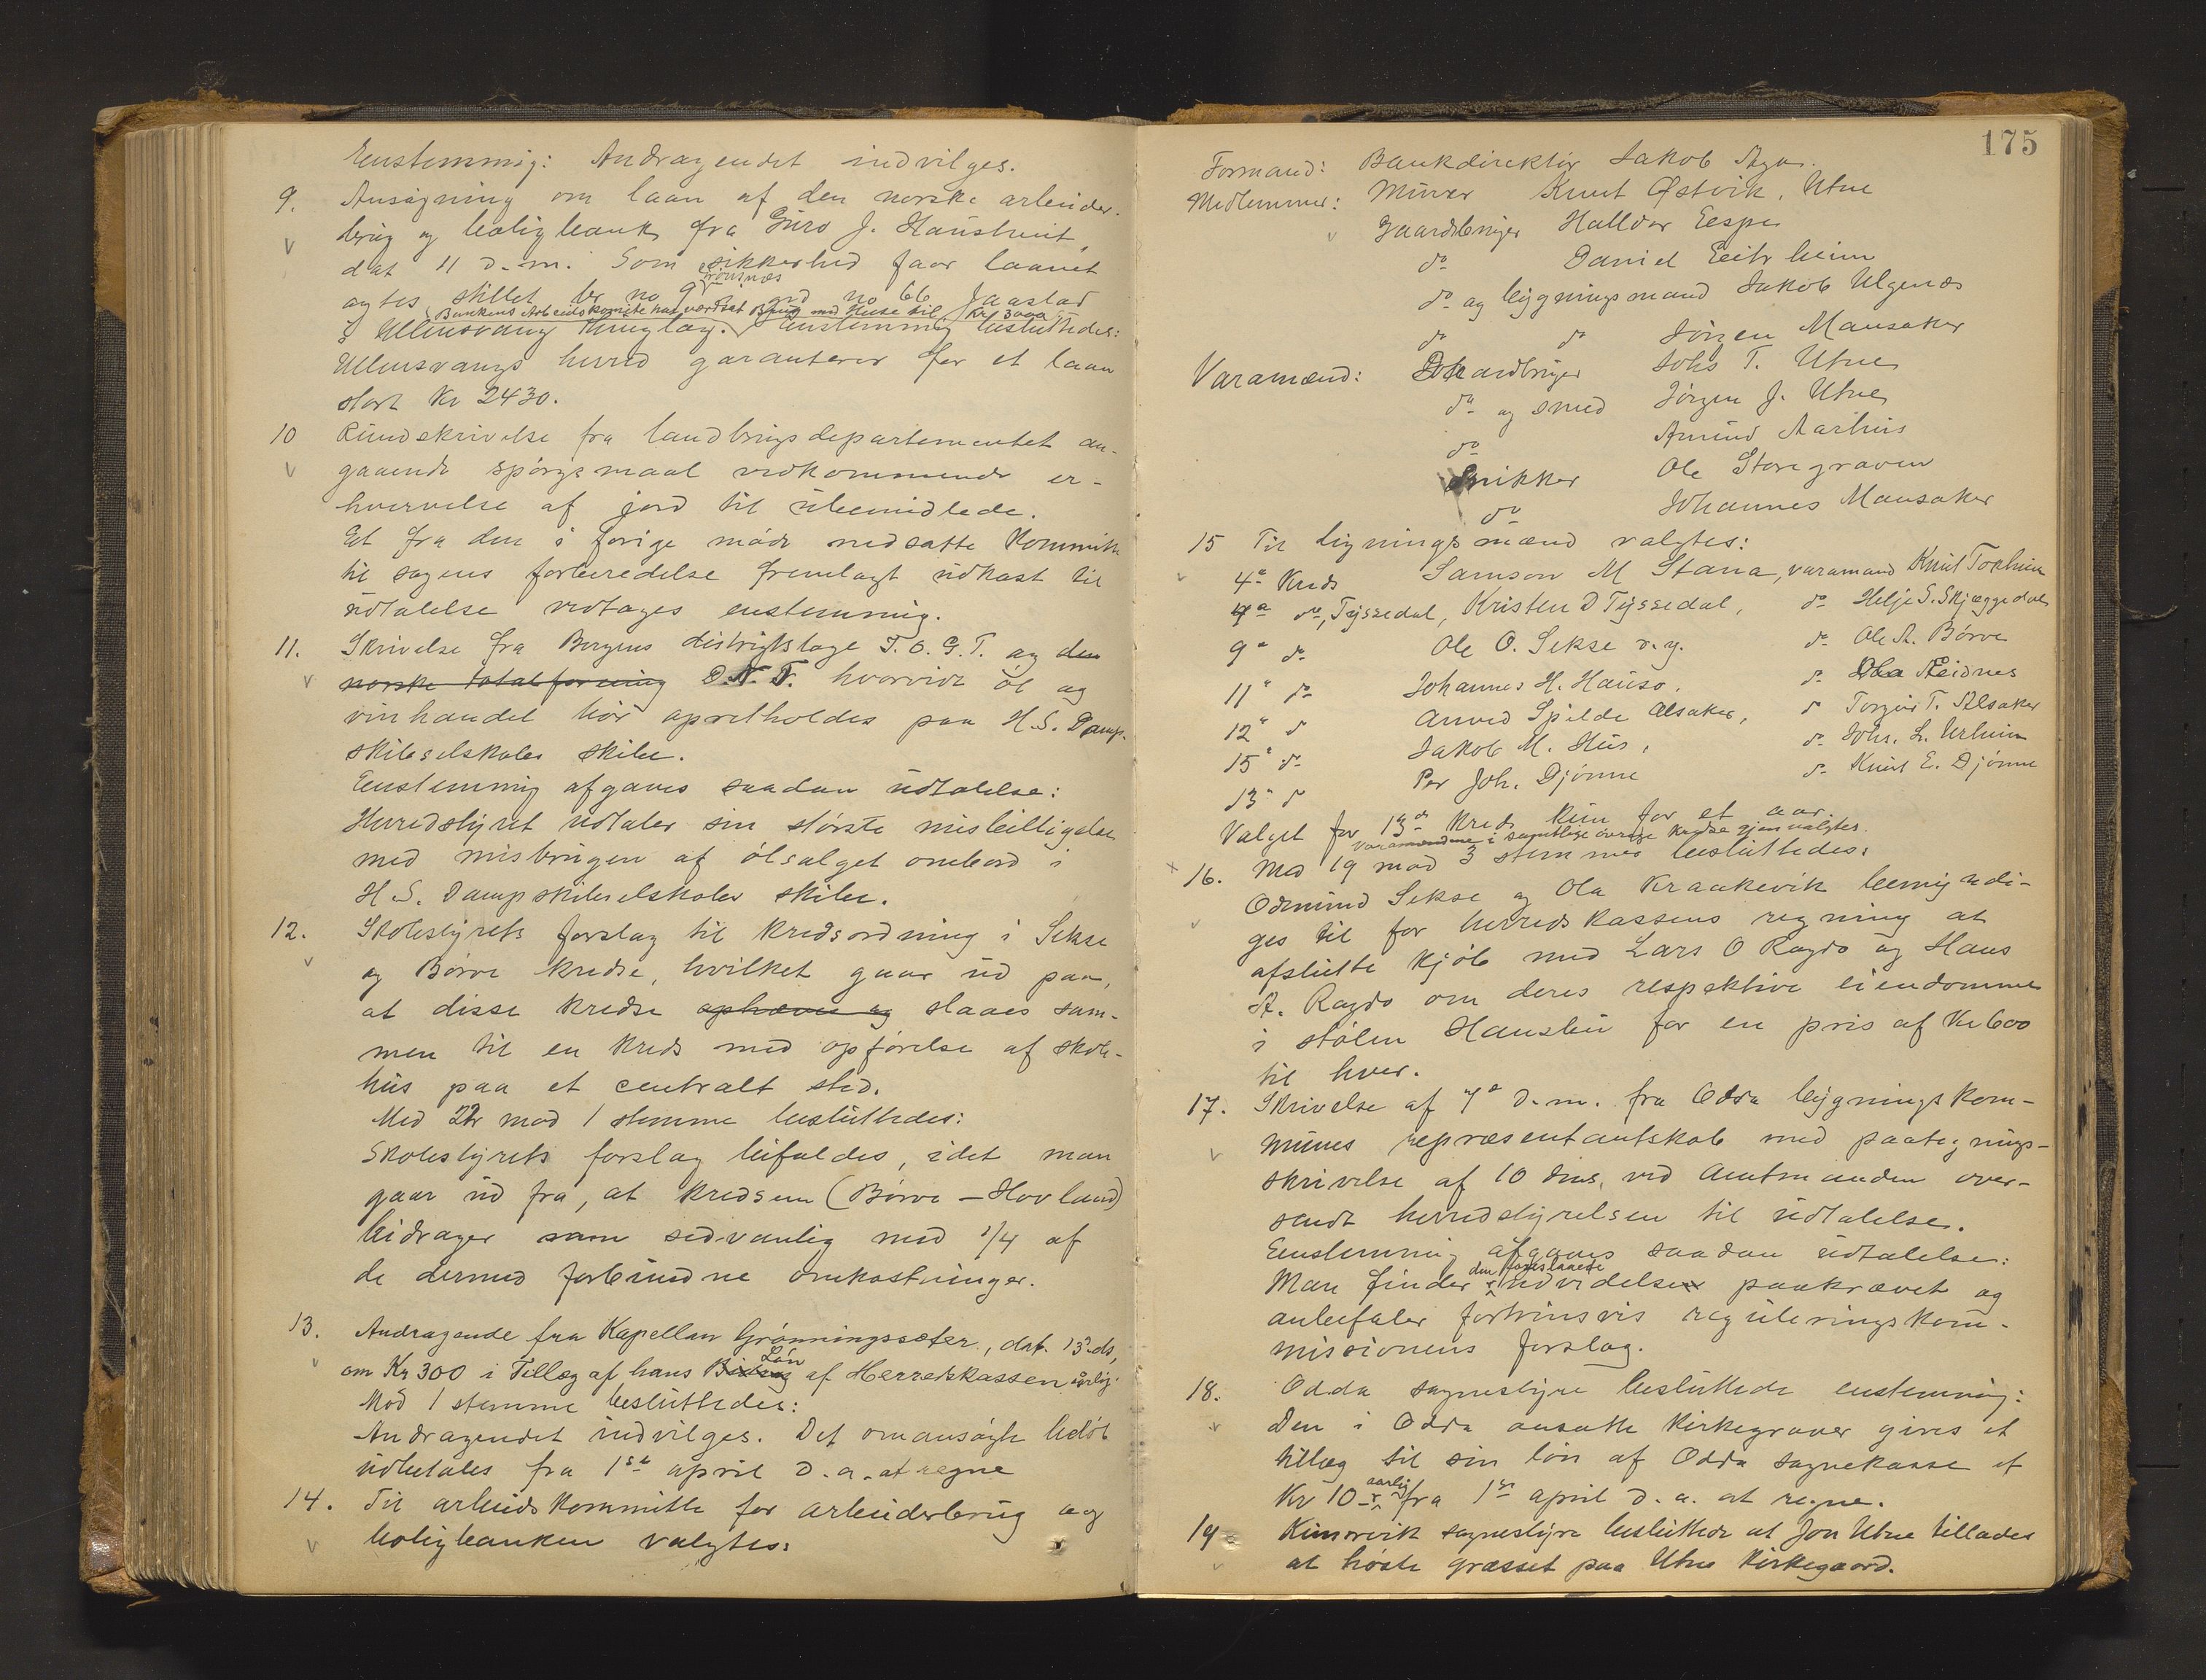 Eenstemmig: Andragendet indvilges.
9. Ansøgning om laan af den norske arbeider-
brug og boligbank fra Guro J. Haustveit,
dat 11 d.m. Som sikkerhed faar laanet
agtes stillet br no 9 Grønnæs grd no 66 Jaastad
Bankens Arbeidskomite har værdsat Brug med Huse til Kr 3000
i Ullensvang thinglag. Eenstemmig besluttedes:
Ullensvangs herred garanterer for et laan
stort Kr 2430.
10 Rundskrivelse fra landbrugsdepartementet an-
gaaende spørgsmaal vedkommende er-
hvervelse af jord til ubemidlede.
Et fra den i forige møde nedsatte Kommitte
til sagens forberedelse fremlagt udkast til
udtalelse vedtages enstemmig.
11. Skrivelse fra Bergens distriktsloge I.O.G.T. og den
norske totalforening D.N.T. hvorvidt øl og
vinhandel bør opretholdes paa H.S. Damp-
skibsselskabs skibe.
Eenstemmig afgaves saadan udtalelse:
Herredstyret udtaler sin største misbilligelse
med misbrugen af ølsalget ombord i
H.S. Dampskibsselskabs skibe.
12. Skolestyrets forslag til Kredsordning i Sekse
og Børve kredse, hvilket gaar ud paa,
at disse kredse ophæves og slaaes sam-
men til en Kreds med opførelse af skole-
hus paa et centralt sted.
Med 22 mod 1 stemme besluttedes:
Skolestyrets forslag bifaldes, idet man
gaar ud fra, at kredsen (Børve – Hovland)
bidrager som sedvanlig med 1/4 af
de dermed forbundne omkostninger.
13. Andragende fra Kapellan Grønningssæter, dat. 13 ds,
om Kr 300 i Tillæg af hans Bidrag Løn af Herredskassen årlig.
Mod 1 stemme besluttedes:
Andragendet indvilges. Det omansøgte beløb
udbetales fra 1ste april d.a. at regne
14. Til arbeidskommitte for arbeiderbrug og
boligbanken valgtes:
175
Formand: Bankdirektør Jakob Aga.
Medlemmer: Murer Knut Østvik, Utne
Gaardbruger Halldor Espe
do Daniel Eitrheim
do og bygningsmand Jakob Ulgenæs
do do Jørgen Mansaker
Varamænd: Gaardbruger Johs T. Utne
do og smed Jørgen J. Utne
do Amund Aarhus
Snikker Ole Storegraven
do Johannes Mansaker
15 Til ligningsmænd valgtes:
4de Kreds Samson M Stana, varamand Knut Tokheim
4de do, Tyssedal, Kristen D Tyssedal, do Helje S. Skjæggedal
9de do Ole O. Sekse v.g. do Ole A. Børve
11te do Johannes H. Hauso. do Ola Reidnes
12te do Anved Spilde Alsaker, do Torgeir T. Alsaker
15de do Jakob M. Hus, do Johs. L. Urheim
13de do Per Joh. Djønne do Knut E. Djønne
Valget for 13de Kreds kun for et aar.
Varamændene i samtlige øvrige kredse gjenvalgtes.
16. Med 19 mod 3 stemmer besluttedes:
Odmund Sekse og Ola Kraakevik bemyndi-
ges til for herredskassens regning at
afslutte kjøb med Lars O Ragde og Hans
A. Ragde om deres respektive eiendomme
i stølen Hanslii for en pris af Kr 600
til hver.
17. Skrivelse af 7de d.m. fra Odda bygningskom-
munes repræsentantskab med paategnings-
skrivelse af 10 dms. ved Amtmanden over-
sendt herredstyrelsen til udtalelse.
Eenstemmig afgaves saadan udtalelse:
Man finder den foreslaaede udvidelsen paakrævet og
anbefaler fortrinsvis reguleringskom-
missionens forslag.
18. Odda sognestyre besluttede enstemmig:
Den i Odda ansatte Kirkegraver gives et
tillæg til sin løn af Odda sognekasse et
Kr 10 aarlig fra 1ste april d.a. at regne.
19 Kinservik sognestyre besluttede at Jon Utne tillades
at høste græsset paa Utne Kirkegaard.